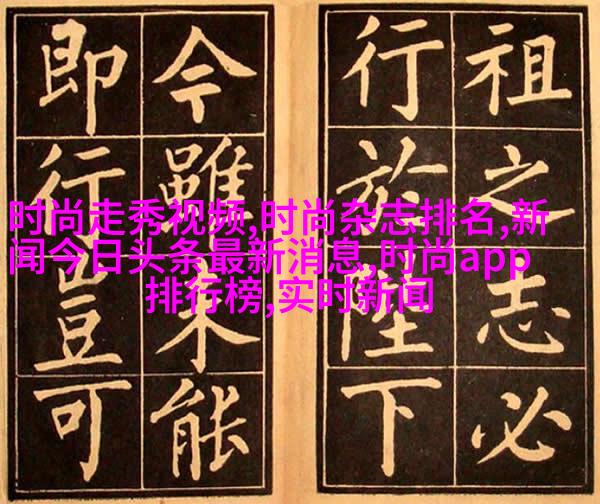 祖之志必
行於陛下
今雖未能
即行豈可
时尚走秀视频,时尚杂志排名,新
闻今日头条最新消息,时尚app
排行榜,实时新闻